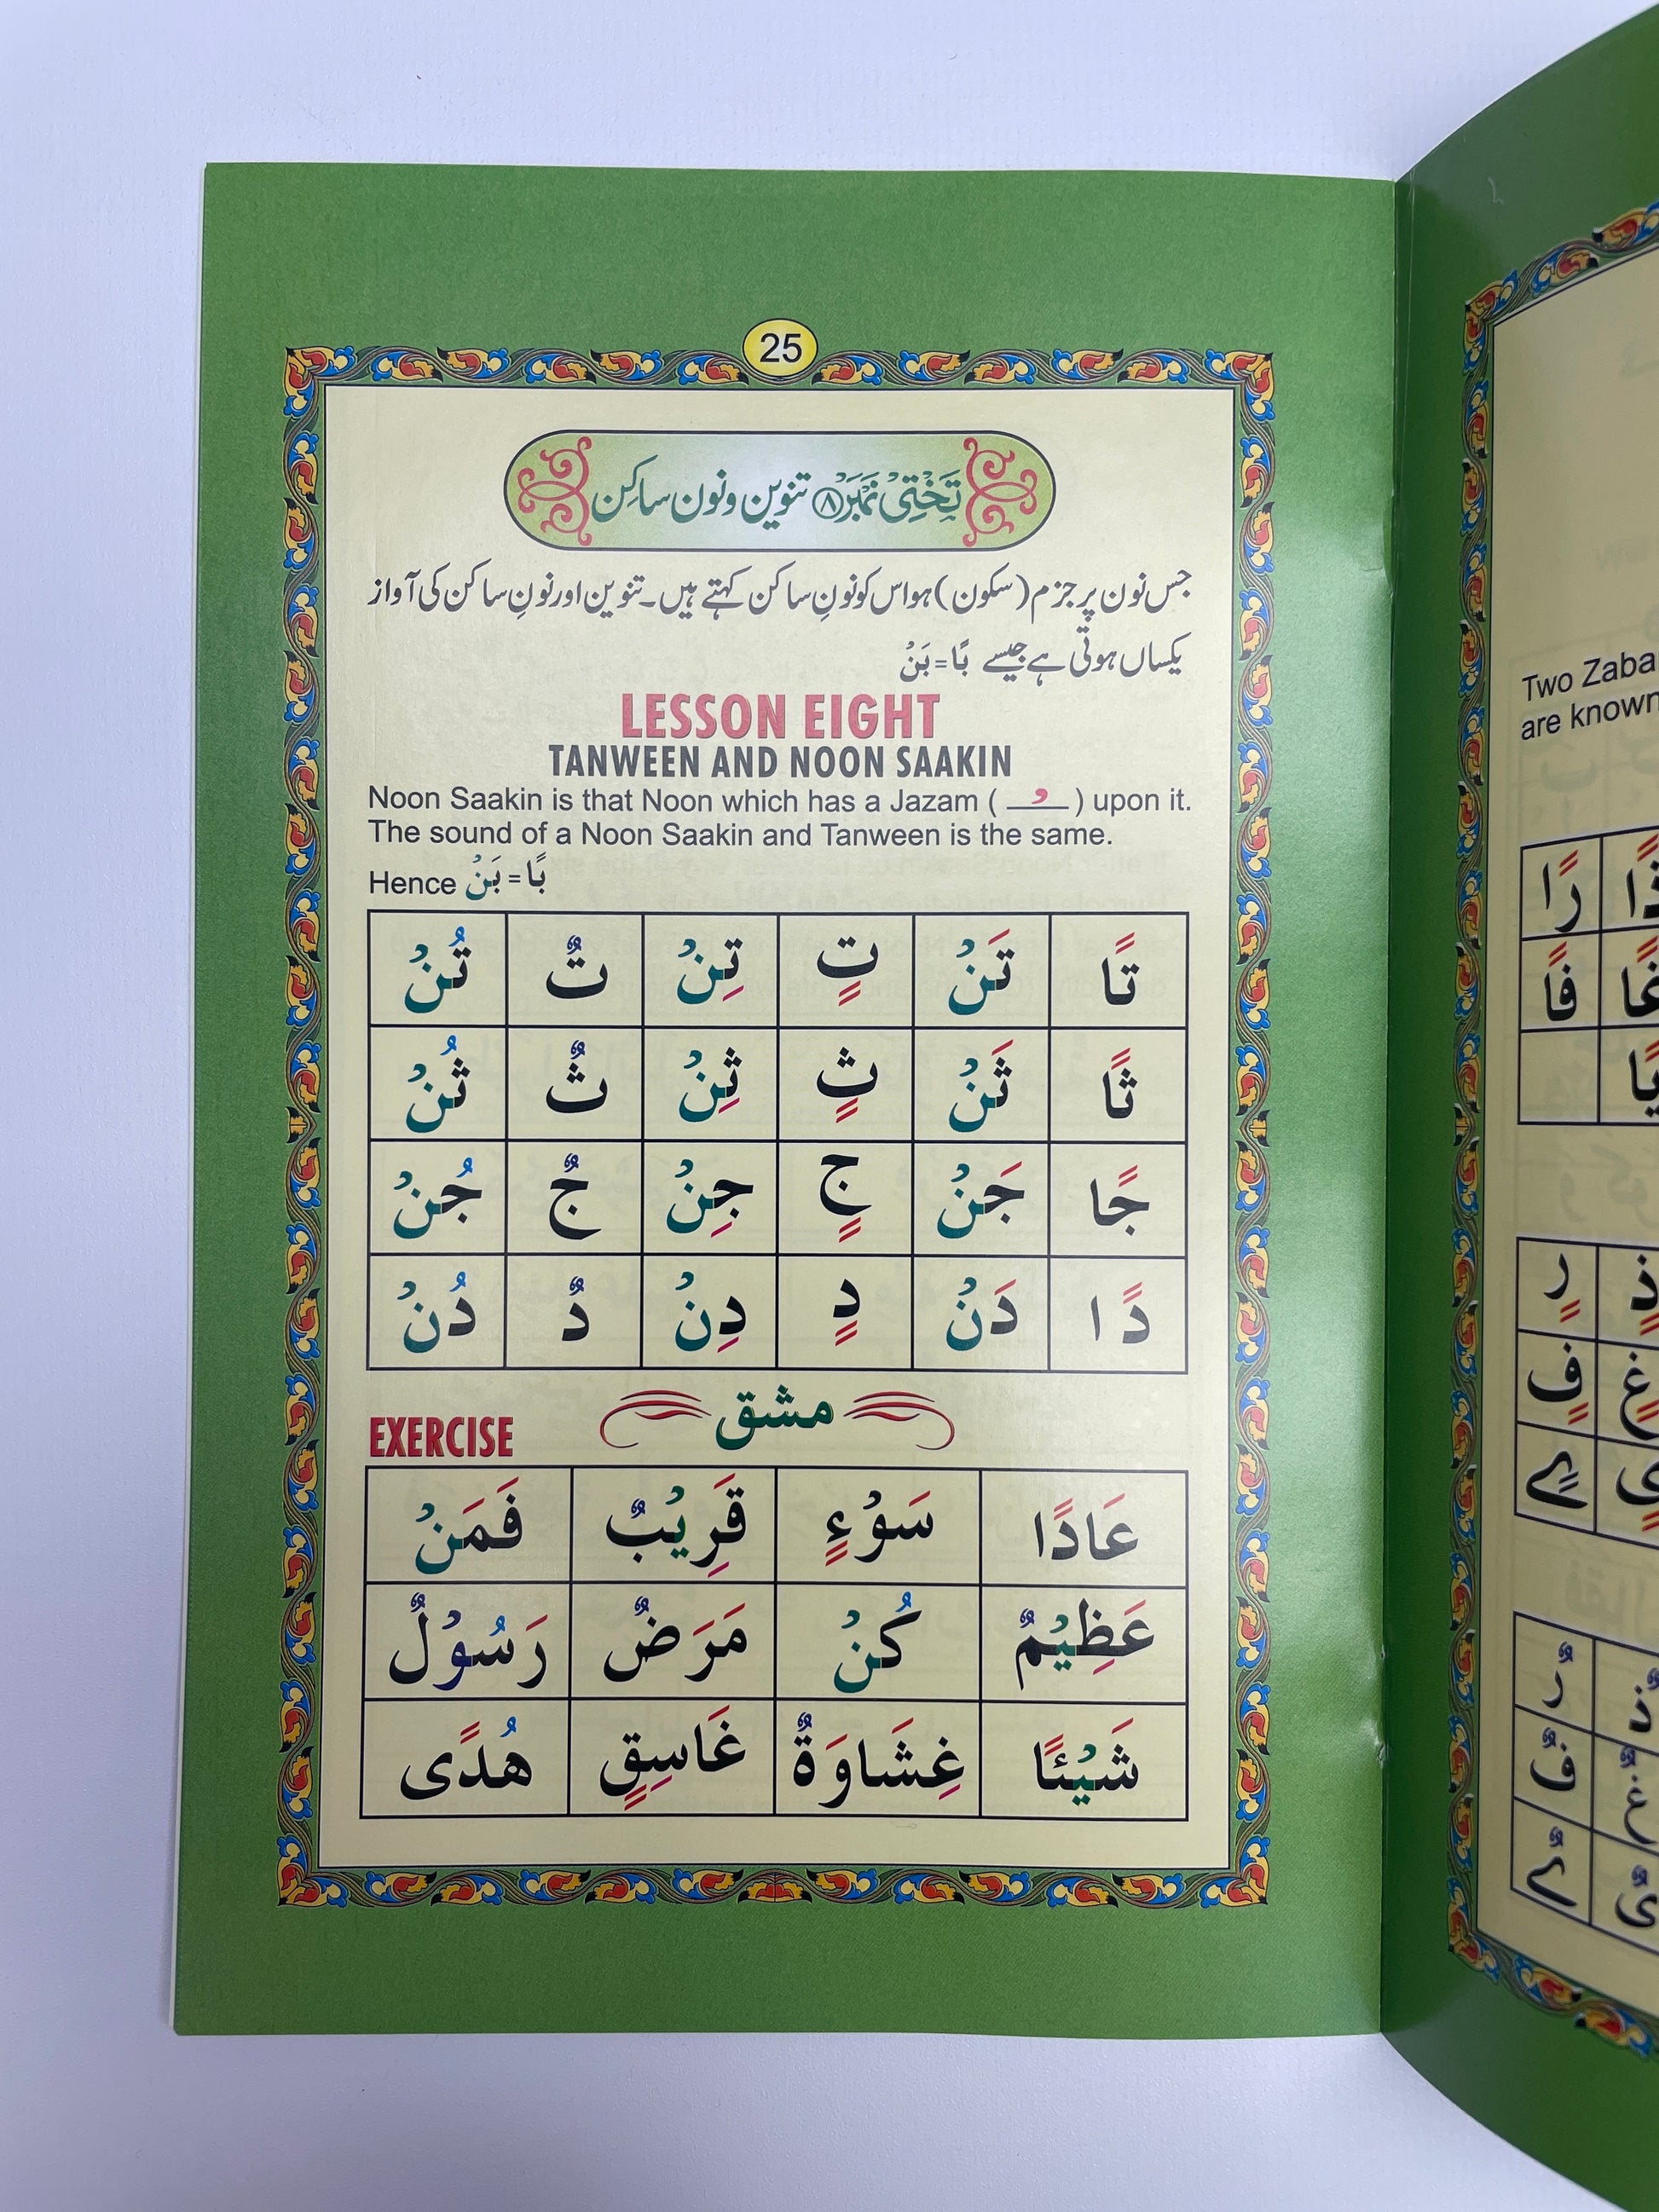 25
تَخْتِیْ نَمْبَرْ ۸ تنوین و نون ساکِن
جس نون پر جزم (سکون) ہو اس کو نونِ ساکن کہتے ہیں۔ تنوین اور نونِ ساکن کی آواز
یکساں ہوتی ہے جیسے بًا = بَنْ
LESSON EIGHT
TANWEEN AND NOON SAAKIN
Noon Saakin is that Noon which has a Jazam ( ــْـ ) upon it.
The sound of a Noon Saakin and Tanween is the same.
Hence بًا = بَنْ
تًا تَنْ تٍ تِنْ تٌ تُنْ
ثًا ثَنْ ثٍ ثِنْ ثٌ ثُنْ
جًا جَنْ جٍ جِنْ جٌ جُنْ
دًا دَنْ دٍ دِنْ دٌ دُنْ
مشق
EXERCISE
عَادًا سَوْءٍ قَرِيْبٌ فَمَنْ
عَظِيْمٌ كُنْ مَرَضٌ رَسُوْلٌ
شَيْئًا غِشَاوَةٌ غَاسِقٍ هُدًى
Two Zaba
are known
ذًا رًا
غًا فًا
يًا
ذٍ رٍ
غٍ فٍ